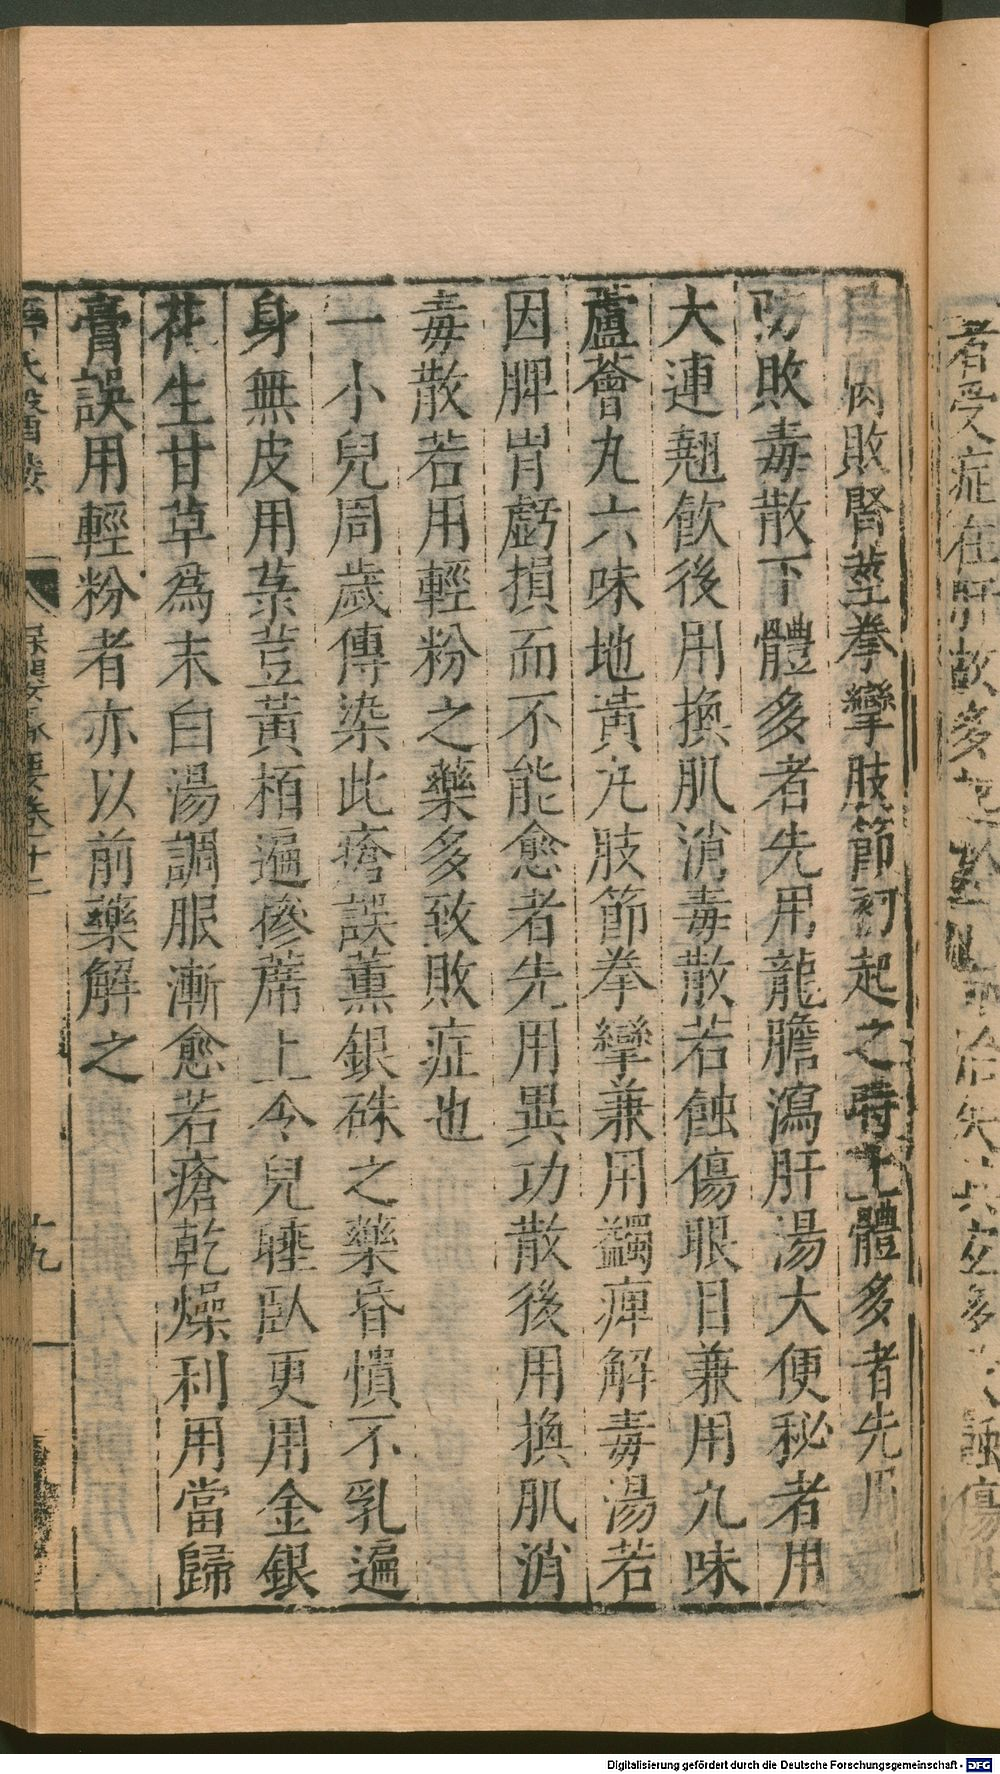 肉敗腎莖拳攣肢節初起之時上體多者先用
防敗毒散下體多者先用龍膽瀉肝湯大便秘者用
大連翹飲後用換肌消毒散若蝕傷眼目兼用九味
蘆薈丸六味地黃丸肢節拳攣兼用蠲痺解毒湯若
因脾胃虧損而不能愈者先用異功散後用換肌消
毒散若用輕粉之藥多致敗症也
一小兒周歲傳染此瘡誤薰銀硃之藥昏憒不乳遍
身無皮用菉荳黃栢遍摻蓆上令兒睡臥更用金銀
花生甘草為末白湯調服漸愈若瘡乾燥利用當歸
膏誤用輕粉者亦以前藥解之
十九
者受症在肝故多
Digitalisierung gefördert durch die Deutsche Forschungsgemeinschaft - DFG